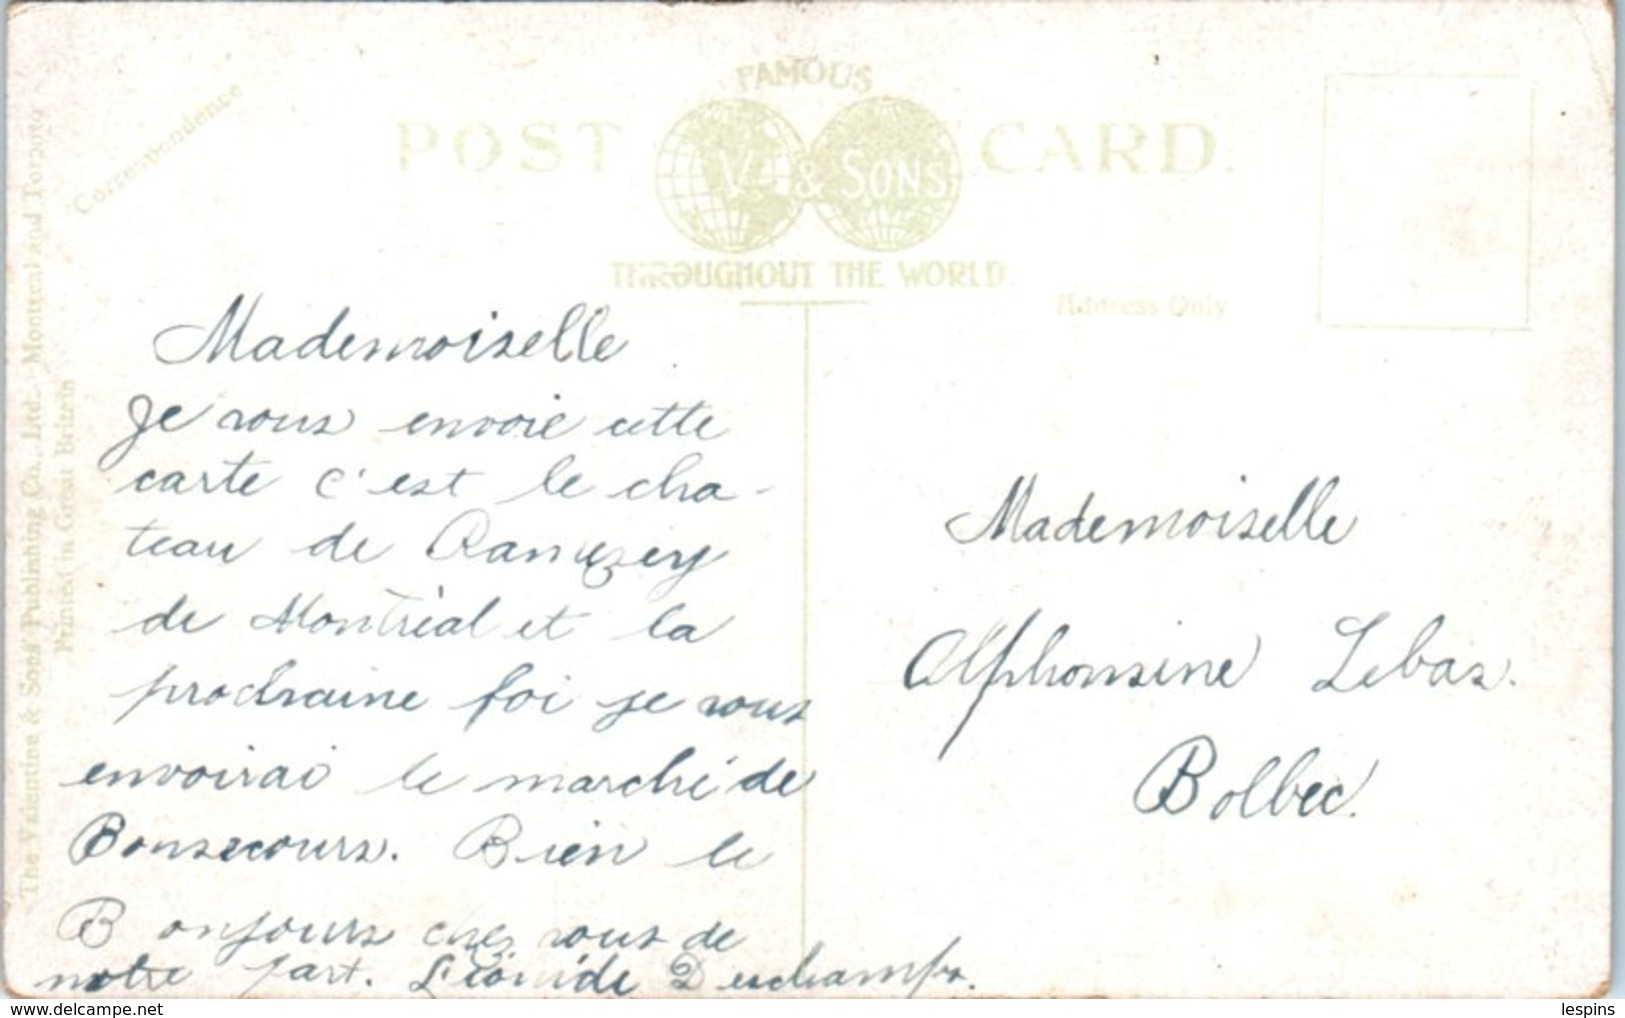 Correspondence
FAMOUS
POST V. & SONS CARD.
THROUGHOUT THE WORLD
Address Only
The Valentine & Sons' Publishing Co., Ltd. Montreal and Toronto
Printed in Great Britain
Mademoiselle
Je vous envoie cette
carte c'est le cha-
teau de Ramezey
de Montréal et la
prochaine foi je vous
envoirai le marché de
Bonsecours. Bien le
Bonjours chez vous de
notre part. Léonide Deschamps.
Mademoiselle
Alphonsine Lebas.
Bolbec.
https://www.delcampe.net
lespins